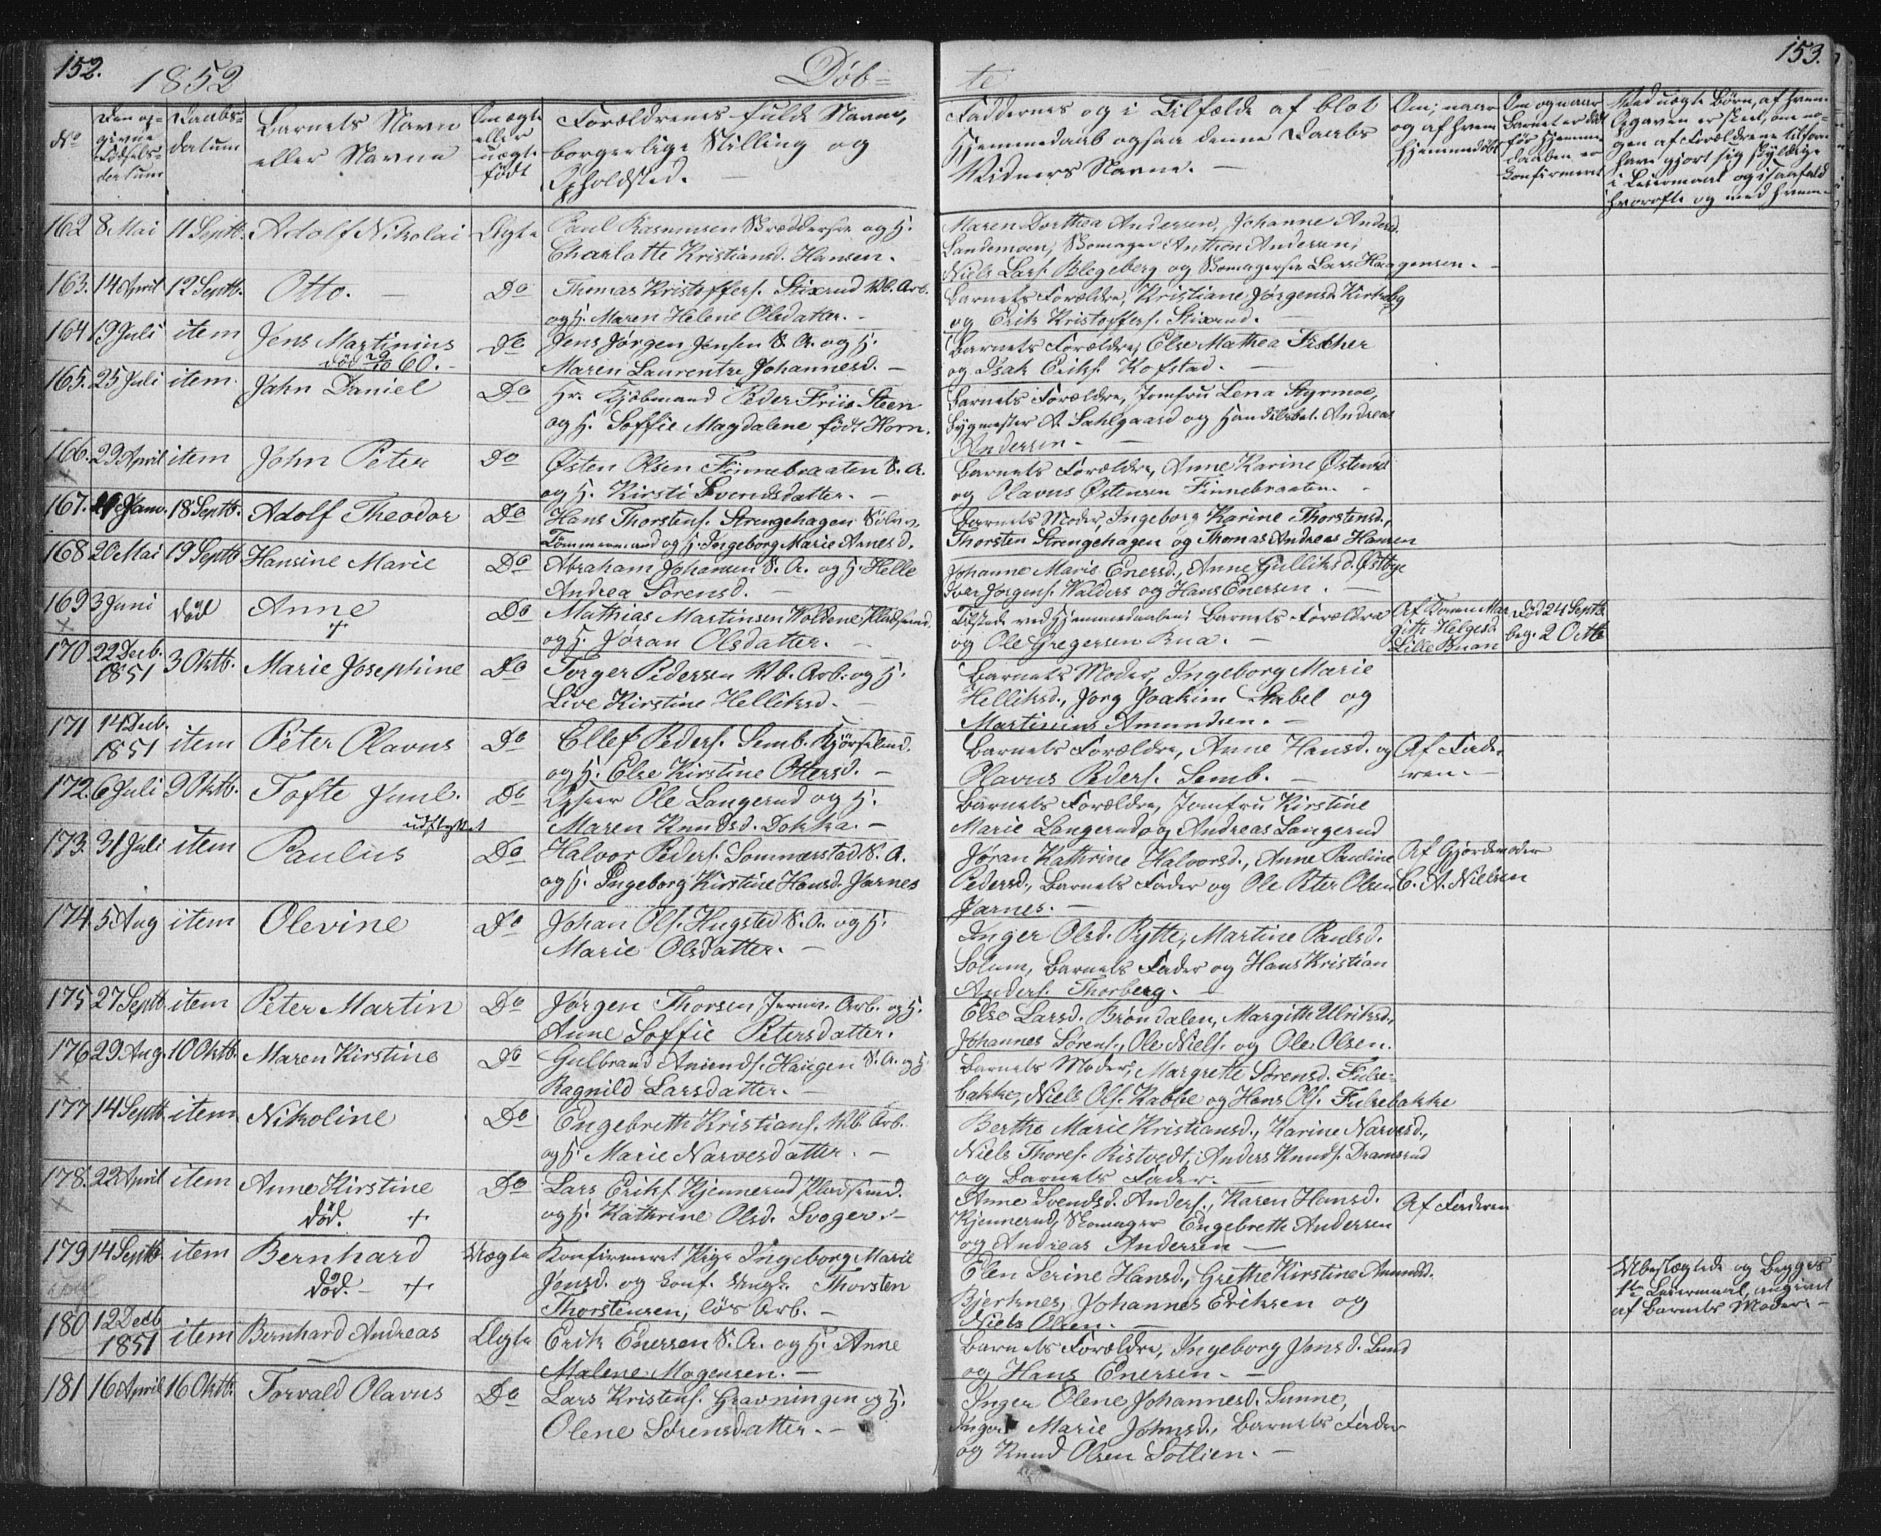 152.
1852
Døb-
No
Den op-
givne
Fødsels-
datum
Daabs-
datum
Barnets Navn
eller Navne
Om ægte
eller
uægte
født
Forældrenes fulde Navne,
borgerlige Stilling og
Opholdsted. —
162 8 Mai 11 Septb. Adolf Nikolai Ægte Paul Rasmusen og H.
Charlotte Kristiansd. Hansen. -
163. 14 April 12 Septb. Otto. — Do Thomas Kristoffers. Stixrud Vb. Arb.
og H. Maren Helene Olsdatter. -
164 19 Juli item Jens Martinius Do Jens Jørgen Jensen S. A. og H.
død 29/10 60. - Maren Laurentze Johannesd. -
165. 25 Juli item Jahn Daniel Do Hr. Kjøbmand Peder Friis Steen
og H. Soffie Magdalene født Horn.
166. 29 April item John Peter Do Østen Olsen Finnebraaten S. A.
x og H. Kirsti Svendsdatter. —
167. Jan. 18 Septb. Adolf Theodor Do Hans Thorstens. Strengehagen Sølvv.
Tømmermand og H. Ingeborg Marie Arnesd.
168 20 Mai 19 Septb Hansine Marie Do Abraham Johansen S. A. og H. Helle
Andrea Sørensd. -
169 3 Juni død Anne Do Mathias Martinsen Woldene Pladsmd.
x + og H. Jøran Olsdatter. —
170. 22 Decb. 3 Oktb. Marie Josephine Do Torger Pedersen Vb. Arb. og H.
1851 Live Kirstine Helliksd. -
171 14 Decb. item Peter Olavus Do Ellef Peders. Semb. Kjørselmd.
1851 og H. Else Kirstine Ottersd. —
172. 6 Juli 9 Oktb. Tofte Juul. Do Opseer Ole Langerud og H.
udflyttet Maren Knudsd. Dokka. —
173. 31 Juli item Paulus Do Halvor Peders. Sommerstad S. A.
og H. Ingeborg Kirstine Hansd. Jarnes
174. 5 Aug item Olevine Do Johan Ols. Hugsted S. A. og H.
Marie Olsdatter. —
175 27 Septb item Peter Martin Do Jørgen Thorsen Jernv. Arb. og H.
Anne Soffie Petersdatter.
176 29 Aug. 10 Oktb. Maren Kirstine Do Gulbrand Amunds. Haugen S. A. og H
x Ragnild Larsdatter. —
177 14 Septb item Nikoline Do Engebreth Kristians. Vb. Arb.
og H. Marie Narvesdatter. —
178. 22 April item Anne Kirstine Do Lars Eriks. Kjennerud Pladsmd.
x død. + og H. Kathrine Olsd. Svoger. -
179 14 Septb. item Bernhard Uægte Konfirmeret Pige Ingeborg Marie
død. - + Jonsd. og konf. Ungk. Thorsten
Thorstensen, løs Arb. —
180 12 Decb item Bernhard Andreas Ægte Erik Enersen S. A. og H. Anne
1851 Malene Mogensen. —
181 16 April 16 Oktb. Torvald Olavus Do Lars Kristens. Gravningen og H.
Olene Sørensdatter. —
te
153.
Faddernes og i Tilfælde af blot
Hjemmedaab ogsaa denne Daabs
Vidners Navne. —
Om, naar
og af hvem
hjemmedøbt
Om og naar
Barnet er død
før Hjemme-
daaben er
konfirmeret
Ved uægte Børn, af hvem
Opgaven er skeet, om no-
gen af Forældrene tilforn
have gjort sig skyldige
i Leiermaal og i saafald
hvorofte og med hvem. -
Maren Dorthea Andersen, Johanne Andersd.
Landemoen, Skomager Anthon Andersen,
Niels Lars. Blegeberg og Skomagersv. Lars Haagensen. -
Barnets Forældre, Kristiane Jørgensd. Kirkeby
og Erik Kristoffers. Stixrud. —
Barnets Forældre, Else Mathea Fischer
og Isak Eriks. Kofstad. —
Barnets Forældre, Jomfru Lena Styrmoe,
Bygmester A. Dahlgaard og Handelsbet. Andreas
Andersen. —
Barnets Forældre, Anne Karine Østensd.
og Olavus Østensen Finnebraaten. -
Barnets Moder, Ingeborg Karine Thorstensd.,
Thorsten Strengehagen og Thomas Andreas Hansen
Johanne Marie Enersd., Anne Gulliksd. Østbye
Iver Jørgens. Walders og Hans Enersen. -
Tilstede ved Hjemmedaaben: Barnets Forældre Af Karen Mar- Død 24 Septb.
og Ole Gregersen Rua. — githe Helgesd. beg. 2 Octb
Lille Buan
Barnets Moder, Ingeborg Marie
Helliksd., Jørg Joakim Stabel og
Martinius Amundsen. —
Barnets Forældre, Anne Hansd. og Af Fade-
Olavus Peders. Semb. — ren. -
Barnets Forældre, Jomfru Kirstine
Marie Langerud og Andreas Langerud
Jøran Kathrine Halvorsd., Anne Pauline Af Gjordemoder
Pedersd., Barnets Fader og Ole Peter Olsen C. A. Nielsen
Jarnes. —
Inger Olsd. Rytte, Martine Paulsd.
Solum, Barnets Fader og Hans Kristian
Anders. Thorberg. -
Else Larsd. Brøndalen, Margith Ulriksd.,
Johannes Sørens., Ole Niels. og Ole Olsen.
Barnets Moder, Margrethe Sørensd. Fulse-
bakke, Niels Ols. Kabbe og Hans Ols. Fulsebakke
Berthe Marie Kristiansd., Karine Narvesd.,
Niels Thores. Ristvedt, Anders Knuds. Dramsrud
og Barnets Fader. —
Anne Svendsd. Anders., Karen Hansd. Af Faderen
Kjennerud, Skomager Engebreth Andersen
og Andreas Andersen —
Elen Serine Hansd., Grethe Kirstine Amundsd. Ubeslægtede og Begges
Bjerknes, Johannes Eriksen og 1te Leiermaal, angivet
Niels Olsen. — af Barnets Moder. -
Barnets Forældre, Ingeborg Jensd. Lund
og Hans Enersen. —
Inger Olene Johannesd. Sunne,
Inger Marie Johnsd., Barnets Fader
og Knud Olsen Sollien. —